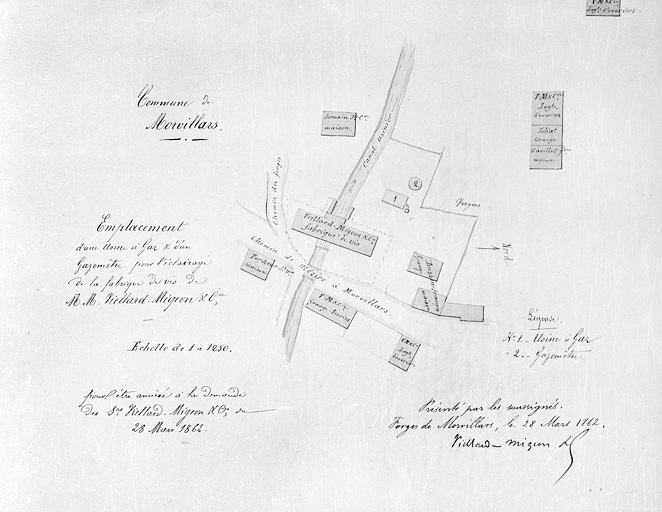 Commune de
Morvillars.
Emplacement
d'une Usine à Gaz & d'un
Gazomètre pour l'éclairage
de la fabrique de vis de
M.M. Viellard-Migeon & Cie
Echelle de 1 à 1250.
pour être annexé à la demande
des Srs Viellard-Migeon & Cie du
28 Mars 1862.
maison
Canal Usinier
Chemin des forges
Viellard-Migeon & Cie
fabrique de vis
Chemin de Mézire à Morvillars.
maison
V.M & Cie
1
2
Vergers
Nord
V.M & Cie
Logts
d'ouvriers
Joliat
Grange
maison
V.M & Cie
Logt d'ouvriers
Légende.
No 1. - Usine à Gaz
2. - Gazomètre.
Présenté par les soussignés.
Forges de Morvillars, le 28 Mars 1862.
Viellard-Migeon &